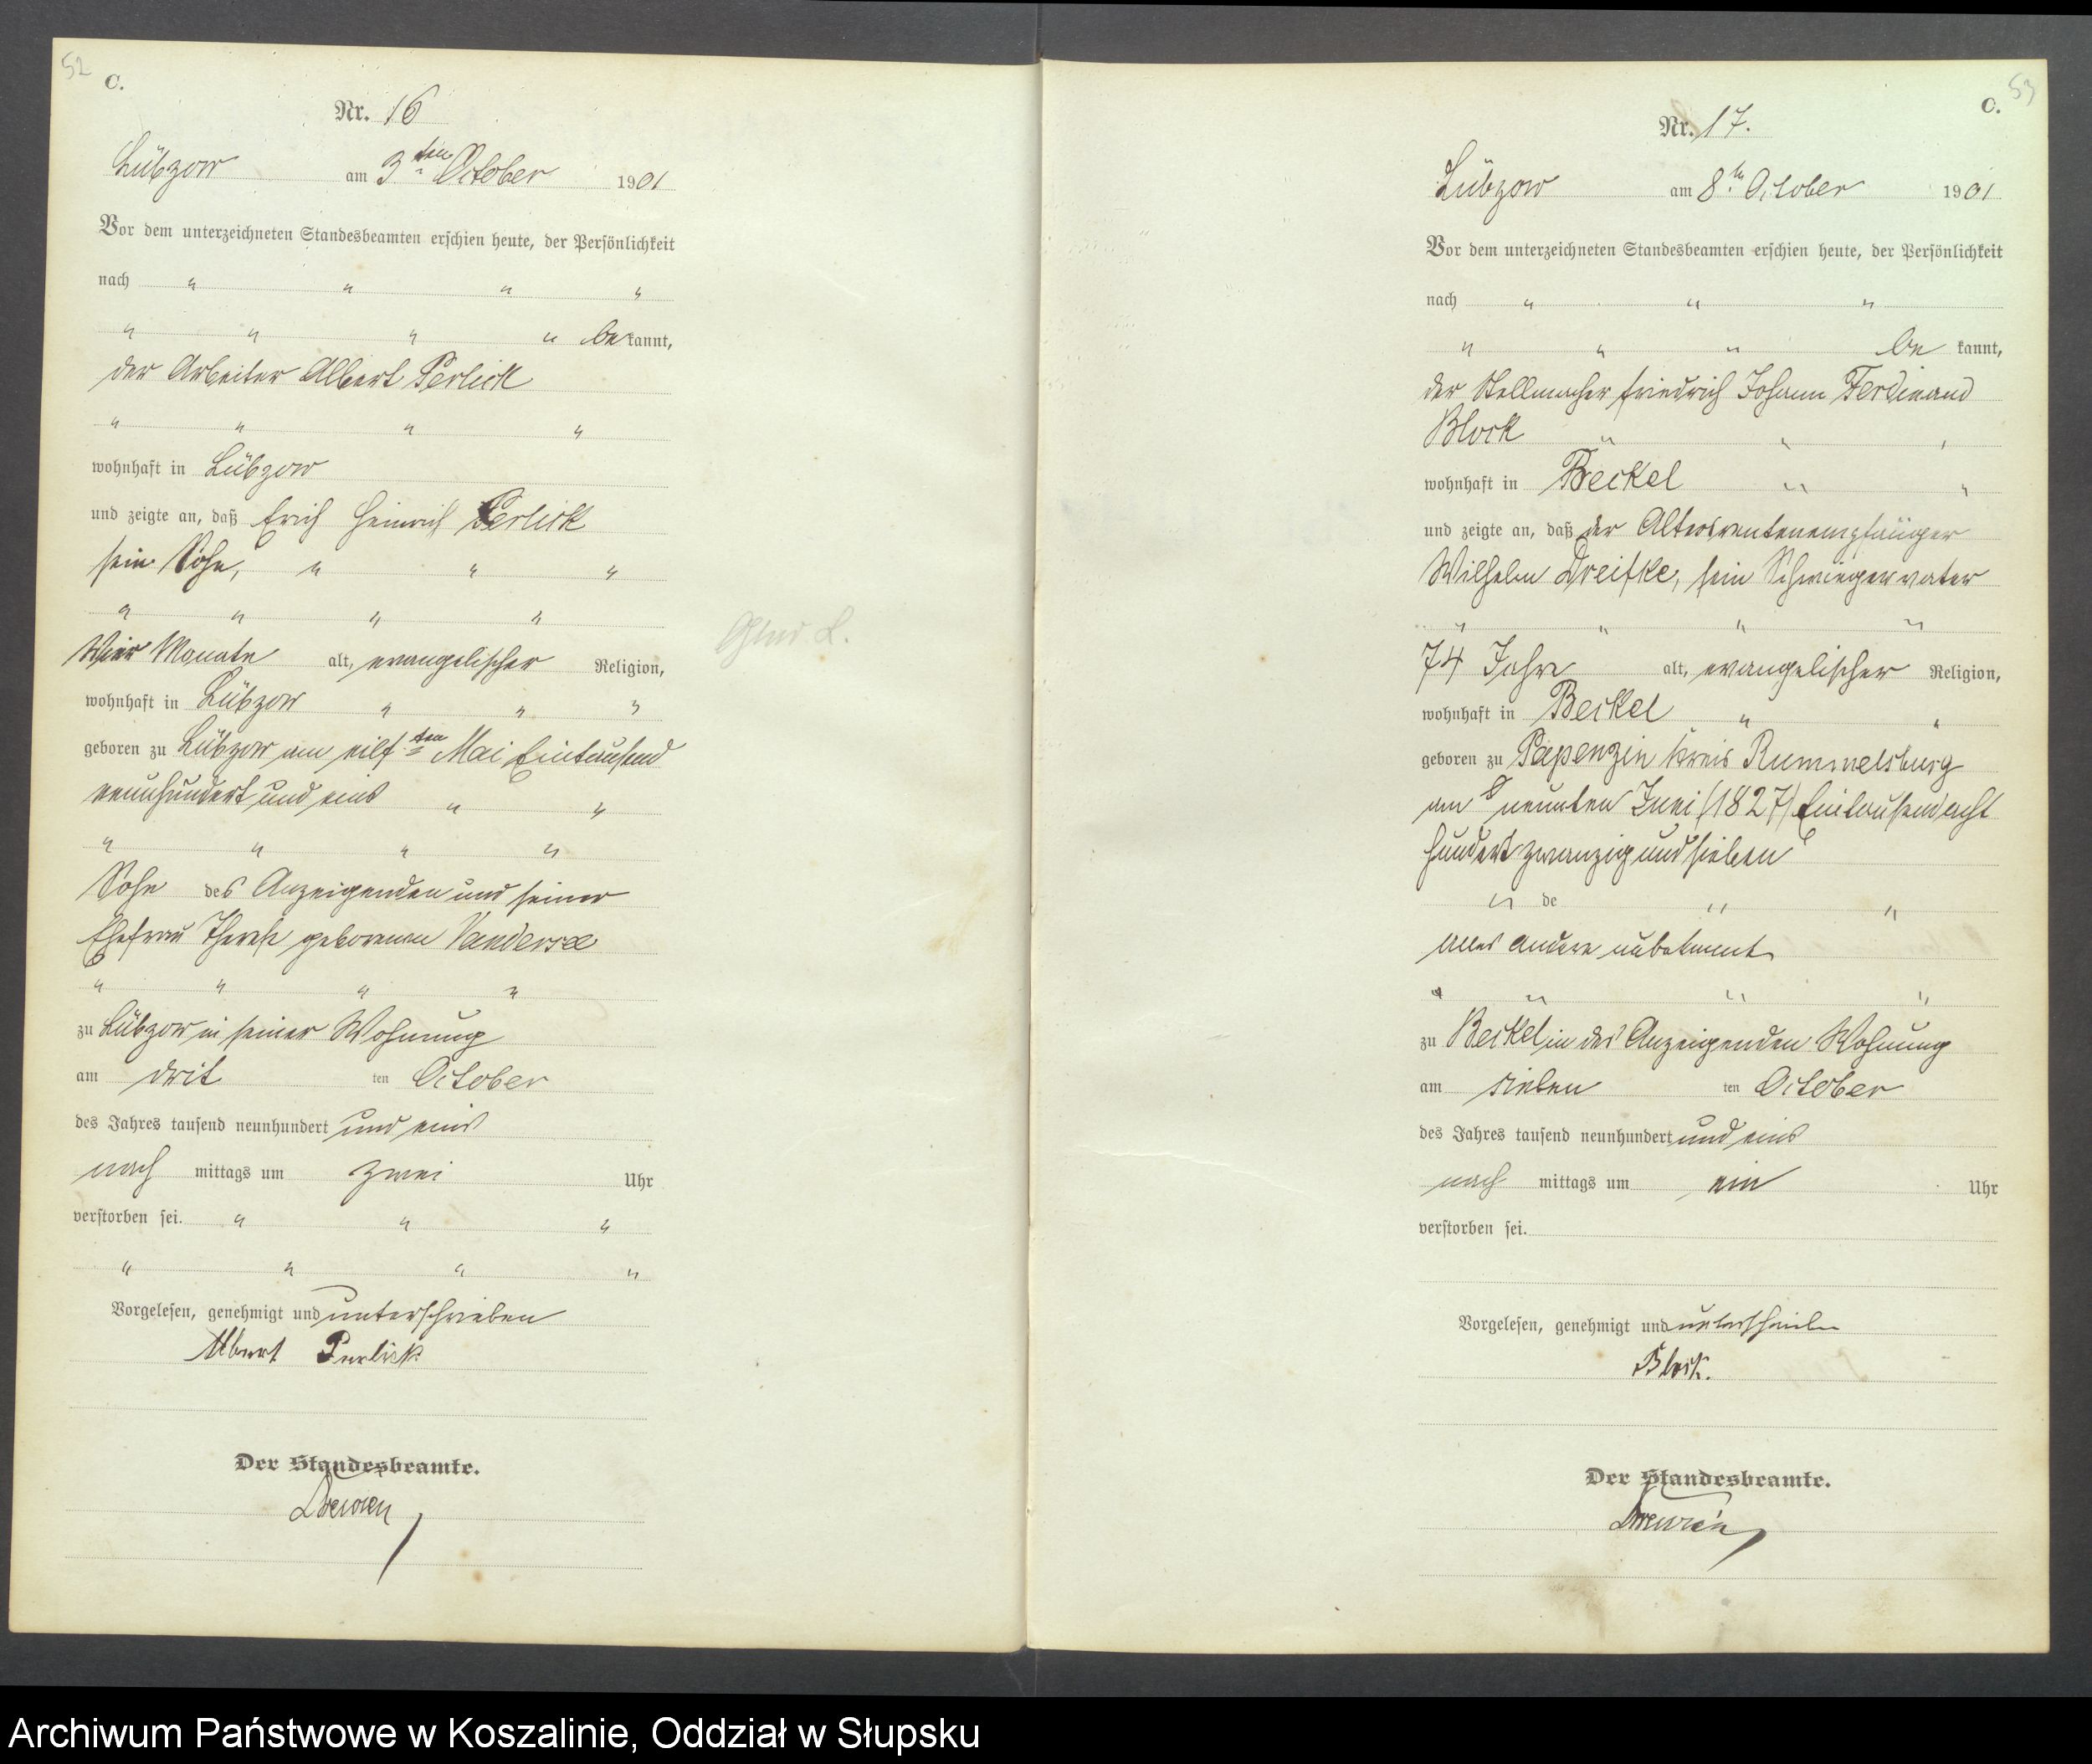 52
C.
Nr. 16
Lübzow am 3ten October 1901
Vor dem unterzeichneten Standesbeamten erschien heute, der Persönlichkeit
nach " " " "
" " " " bekannt,
der Arbeiter Albert Perlick
" " " "
wohnhaft in Lübzow
und zeigte an, daß Erich Heinrich Perlick
sein Sohn, " " "
" " " "
Vier Monate alt, evangelischer Religion,
wohnhaft in Lübzow " " "
geboren zu Lübzow am eilften Mai Eintausend
neunhundert und eins " "
" " " "
Sohn des Anzeigenden und seiner
Ehefrau Therese geborenen Vandersee
" " " "
zu Lübzow in seiner Wohnung
am drit ten October
des Jahres tausend neunhundert und eins
nach mittags um zwei Uhr
verstorben sei. " " "
" " " "
Vorgelesen, genehmigt und unterschrieben
Albert Perlick
Der Standesbeamte.
53
C.
Nr. 17.
Lübzow am 8ten October 1901
Vor dem unterzeichneten Standesbeamten erschien heute, der Persönlichkeit
nach " " "
" " " be kannt,
der Stellmacher Friedrich Johann Ferdinand
Block " " "
wohnhaft in Beckel " "
und zeigte an, daß der Altersrentenempfänger
Wilhelm Dreifke, sein Schwiegervater
" " " "
74 Jahre alt, evangelischer Religion,
wohnhaft in Beckel " "
geboren zu Papenzin Kreis Rummelsburg
am neunten Juni (1827) Eintausend acht
hundert zwanzig und sieben
" de " "
alles andere unbekannt
" " " "
zu Beckel in des Anzeigenden Wohnung
am sieben ten October
des Jahres tausend neunhundert und eins
nach mittags um ein Uhr
verstorben sei.
Vorgelesen, genehmigt und unterschrieben
Block.
Der Standesbeamte.
Archiwum Państwowe w Koszalinie, Oddział w Słupsku